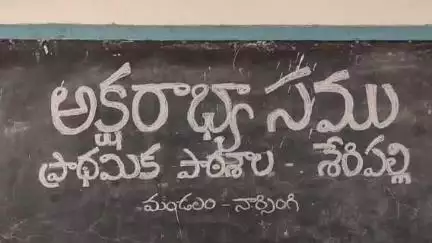 అక్షరాభ్యాసము
ప్రాథమిక పాఠశాల - శేరిపల్లి
మండలం - నార్సింగి